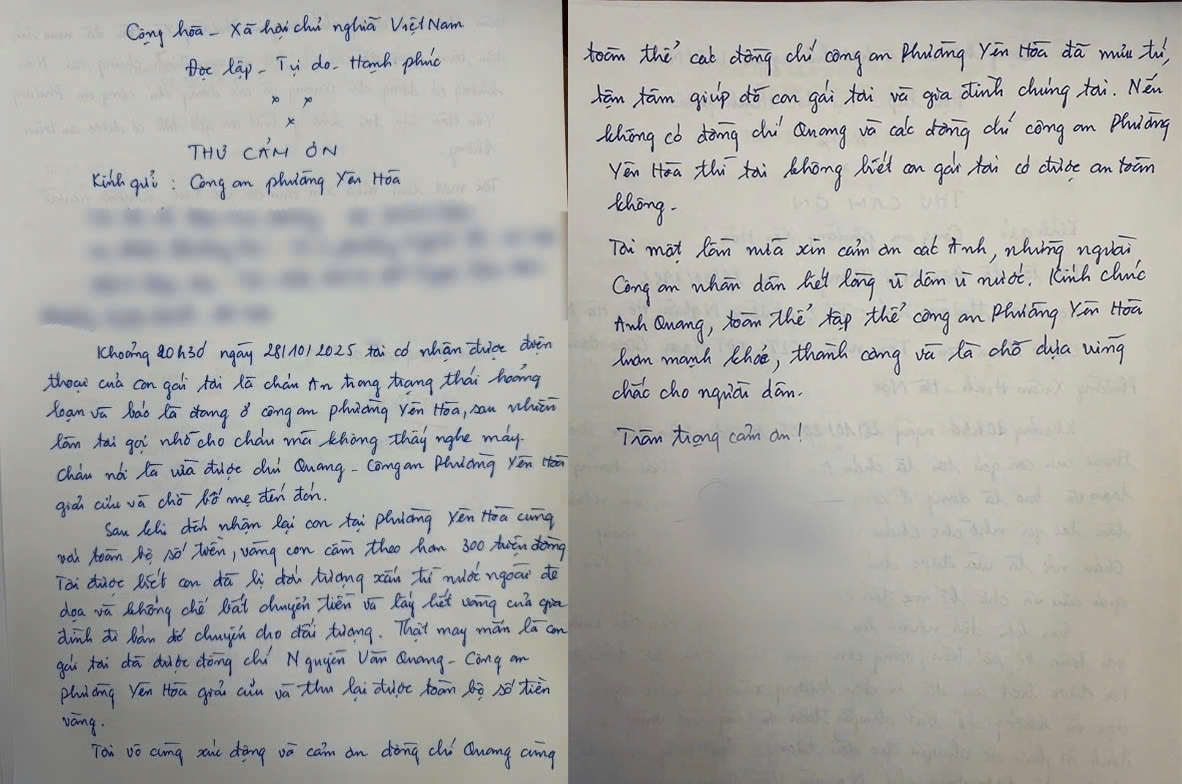 Cộng hòa - Xã hội chủ nghĩa Việt Nam
Độc lập - Tự do - Hạnh phúc
THƯ CẢM ƠN
Kính gửi : Công an phường Yên Hòa
Khoảng 20h30 ngày 28/10/2025 tôi có nhận được điện
thoại của con gái tôi là cháu An trong trạng thái hoảng
loạn và báo là đang ở công an phường Yên Hòa, sau nhiều
lần tôi gọi nhỡ cho cháu mà không thấy nghe máy.
Cháu nói là vừa được chú Quang - Công an Phường Yên Hòa
giải cứu và chờ bố mẹ đến đón.
Sau khi đến nhận lại con tại phường Yên Hòa cùng
với toàn bộ số tiền, vàng con cầm theo hơn 300 triệu đồng
Tôi được biết con đã bị đối tượng xấu từ nước ngoài đe
dọa và khống chế bắt chuyển tiền và lấy hết vàng của gia
đình đi bán để chuyển cho đối tượng. Thật may mắn là con
gái tôi đã được đồng chí Nguyễn Văn Quang - Công an
phường Yên Hòa giải cứu và thu lại được toàn bộ số tiền
vàng.
Tôi vô cùng xúc động và cảm ơn đồng chí Quang cùng
toàn thể các đồng chí công an Phường Yên Hòa đã mưu trí,
tận tâm giúp đỡ con gái tôi và gia đình chúng tôi. Nếu
không có đồng chí Quang và các đồng chí công an Phường
Yên Hòa thì tôi không biết con gái tôi có được an toàn
không.
Tôi một lần nữa xin cảm ơn các Anh, những người
Công an nhân dân hết lòng vì dân vì nước. Kính chúc
Anh Quang, toàn thể tập thể công an Phường Yên Hòa
luôn mạnh khỏe, thành công và là chỗ dựa vững
chắc cho người dân.
Trân trọng cảm ơn !